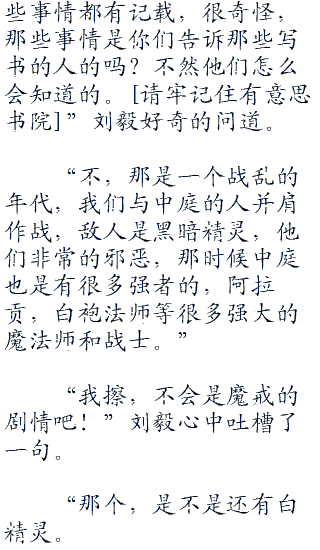 些事情都有记载，很奇怪，
那些事情是你们告诉那些写
书的人的吗？不然他们怎么
会知道的。[请牢记住有意思
书院]”刘毅好奇的问道。
“不，那是一个战乱的
年代，我们与中庭的人并肩
作战，敌人是黑暗精灵，他
们非常的邪恶，那时候中庭
也是有很多强者的，阿拉
贡，白袍法师等很多强大的
魔法师和战士。”
“我擦，不会是魔戒的
剧情吧！”刘毅心中吐槽了
一句。
“那个，是不是还有白
精灵。